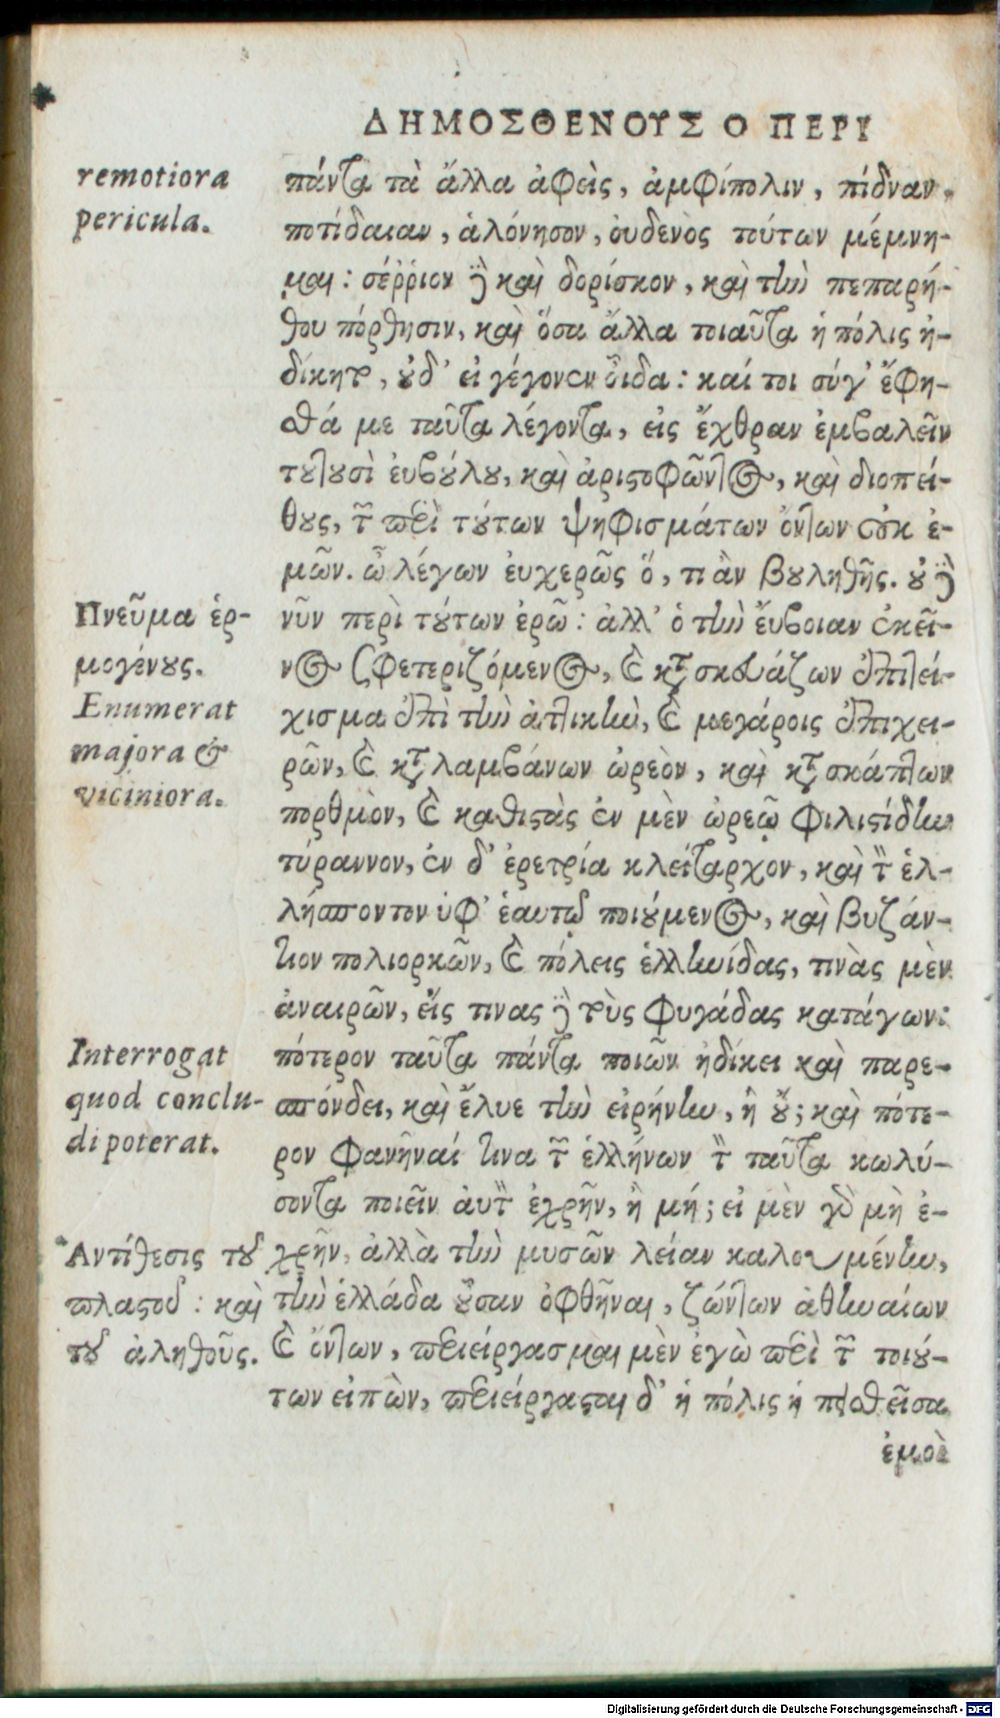 ΔΗΜΟΣΘΕΝΟΥΣ Ο ΠΕΡΙ
remotiora
pericula.
πάντα τὰ ἄλλα ἀφεὶς, ἀμφίπολιν, πίδναν,
ποτίδαιαν, ἁλόνησον, ὀυδενὸς τούτων μέμνη-
μαι: σέῤῥιον δὲ καὶ δορίσκον, καὶ τὴν πεπαρή-
θου πόρθησιν, καὶ ὅσα ἄλλα τοιαῦτα ἡ πόλις ἠ-
δίκητο, οὐδ' εἰ γέγονεν ὂιδα: καί τοι σύγ' ἔφη-
σθά με ταῦτα λέγοντα, εἰς ἔχθραν ἐμβαλεῖν
τουτουσὶ ἐυβούλου, καὶ ἀριστοφῶντος, καὶ διοπεί-
θους, τῶν περὶ τούτων ψηφισμάτων ὄντων οὐκ ἐ-
μῶν. ὦ λέγων ἐυχερῶς ὅ, τι ἂν βουληθῇς. οὐ δὲ
Πνεῦμα ἑρ-
μογένους.
Enumerat
majora &
viciniora.
νῦν περὶ τούτων ἐρῶ: ἀλλ' ὁ τὴν ἔυβοιαν ἐκεῖ-
νος σφετεριζόμενος, καὶ κατασκευάζων ἐπιτεί-
χισμα ἐπὶ τὴν ἀττικὴν, καὶ μεγάροις ἐπιχει-
ρῶν, καὶ καταλαμβάνων ὠρεὸν, καὶ κατασκάπτων
πορθμὸν, καὶ καθιστὰς ἐν μὲν ὠρεῷ φιλιστίδην
τύραννον, ἐν δ' ἐρετρία κλείταρχον, καὶ τὸν ἑλ-
λήσποντον ὑφ' ἑαυτῷ ποιούμενος, καὶ βυζάν-
τιον πολιορκῶν, καὶ πόλεις ἑλληνίδας, τινὰς μὲν
ἀναιρῶν, εἴς τινας δὲ τοὺς φυγάδας κατάγων:
Interrogat
quod conclu-
di poterat.
πότερον ταῦτα πάντα ποιῶν ἠδίκει καὶ παρε-
σπόνδει, καὶ ἔλυε τὴν εἰρήνην, ἢ οὔ; καὶ πότε-
ρον φανῆναί τινα τῶν ἑλλήνων τὸν ταῦτα κωλύ-
σοντα ποιεῖν ἀυτὸν ἐχρῆν, ἢ μή; εἰ μὲν γὰρ μὴ ἐ-
Αντίθεσις τοῦ
πλαστοῦ: καὶ
τοῦ ἀληθοῦς.
χρῆν, ἀλλὰ τὴν μυσῶν λείαν καλουμένην,
τὴν ἑλλάδα οὖσαν ὀφθῆναι, ζώντων ἀθηναίων
καὶ ὄντων, περιείργασμαι μὲν ἐγὼ περὶ τῶν τοιού-
των εἰπὼν, περιείργασται δ' ἡ πόλις ἡ πεισθεῖσα
ἐμοὶ
Digitalisierung gefördert durch die Deutsche Forschungsgemeinschaft - DFG